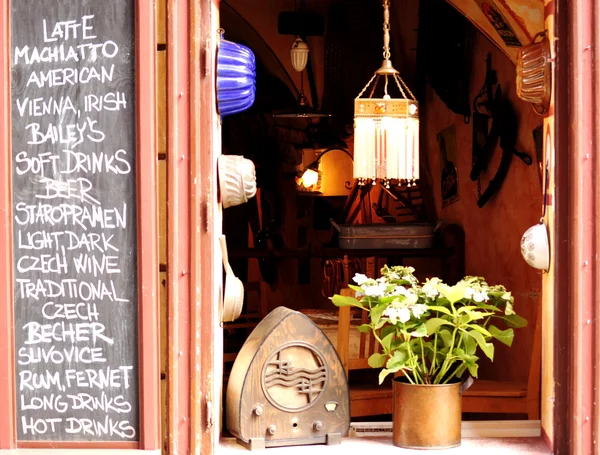 LATTE
MACHIATTO
AMERICAN
VIENNA, IRISH
BAILEY'S
SOFT DRINKS
BEER
STAROPRAMEN
LIGHT, DARK
CZECH WINE
TRADITIONAL
CZECH
BECHER
SLIVOVICE
RUM, FERNET
LONG DRINKS
HOT DRINKS